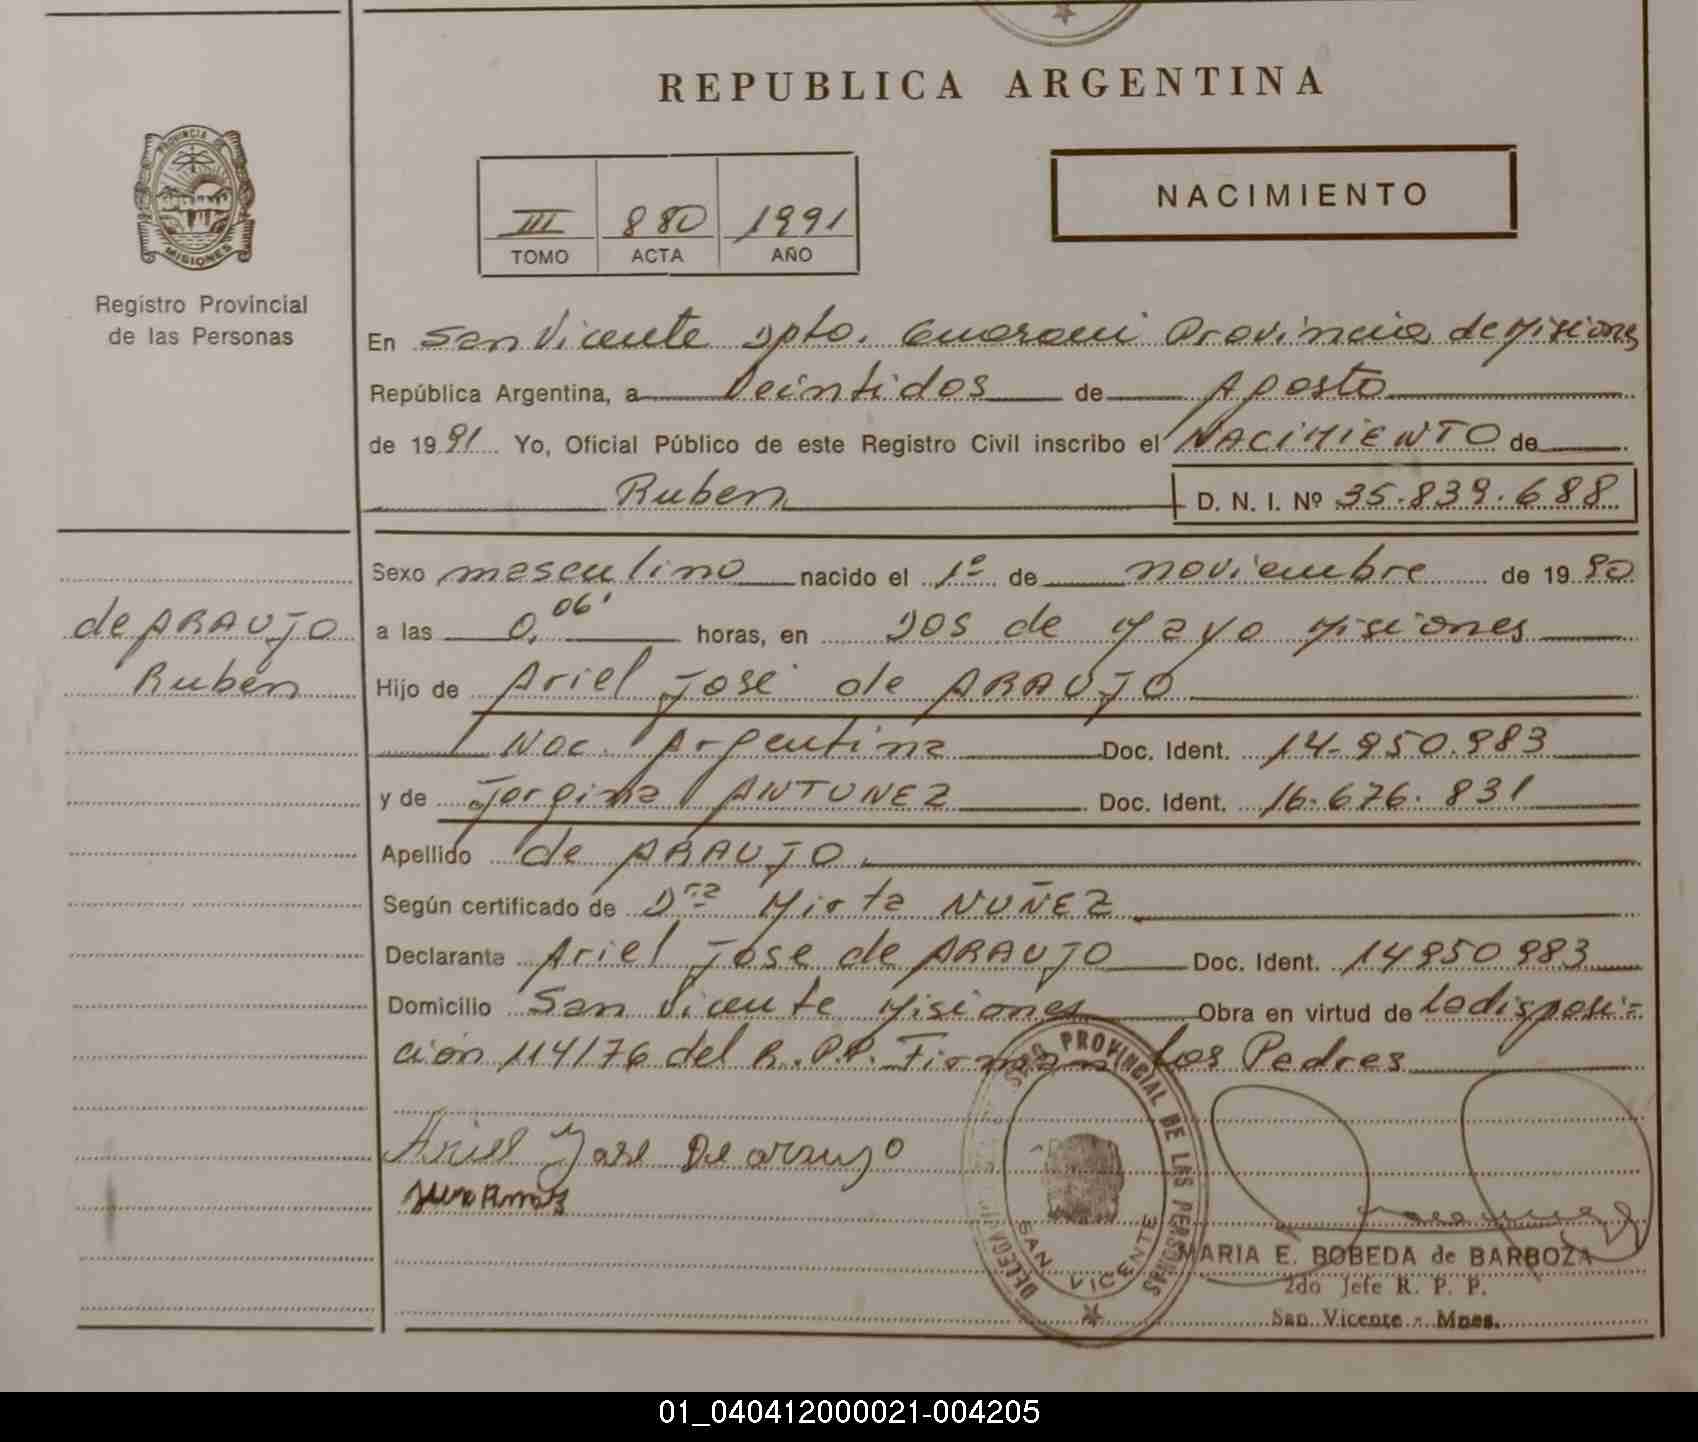 REPUBLICA ARGENTINA
PROVINCIA DE
MISIONES
Registro Provincial
de las Personas
III 880 1991
TOMO ACTA AÑO
NACIMIENTO
En San Vicente Dpto. Guarani Provincia de Misiones
República Argentina, a Veintidos de Agosto
de 1991 Yo, Oficial Público de este Registro Civil inscribo el NACIMIENTO de
Ruben D. N. I. Nº 35.839.688
Sexo masculino nacido el 1º de noviembre de 1990
a las 0,06' horas, en Dos de Mayo Misiones
de ARAUJO
Ruben
Hijo de Ariel Jose de ARAUJO
Nac. Argentina Doc. Ident. 14.950.983
y de Jorgina ANTUNEZ Doc. Ident. 16.676.831
Apellido de ARAUJO
Según certificado de Dra Mirta NUÑEZ
Declarante Ariel Jose de ARAUJO Doc. Ident. 14950983
Domicilio San Vicente Misiones Obra en virtud de La disposi=
ción 114/76 del R.P.P. Firman Los Padres
Ariel Jose De araujo
REG. PROVINCIAL DE LAS PERSONAS
DELEGACION
SAN VICENTE
MARIA E. BOBEDA de BARBOZA
2do Jefe R. P. P.
San Vicente - Mnes.
01_040412000021-004205